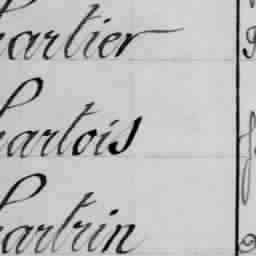 hartier
hartois
hartrin